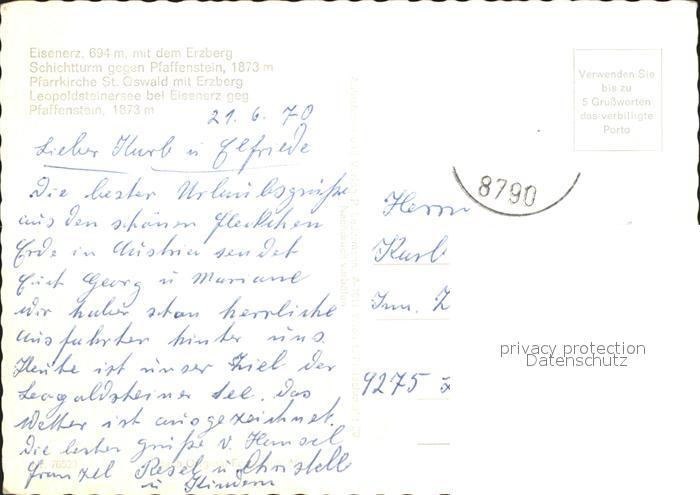 Eisenerz, 694 m, mit dem Erzberg
Schichtturm gegen Pfaffenstein, 1873 m
Pfarrkirche St. Oswald mit Erzberg
Leopoldsteinersee bei Eisenerz geg.
Pfaffenstein, 1873 m
Verwenden Sie
bis zu
5 Grußworten
das verbilligte
Porto
21. 6. 70
Lieber Kurb u Elfriede
Die besten Urlaubsgrüße
aus den schönen fleckchen
Erde in Austria sendet
Euch Georg u Mariane
wir haben schon herrliche
ausfahrten hinter uns.
Heute ist unser Ziel der
Leopoldsteiner See. das
Wetter ist ausgezeichnet.
die besten grüße v. Hansel
franzel Resel u Christelle
u Kindern
8790
Herrn
Kurb
Inn. Z
9275
privacy protection
Datenschutz